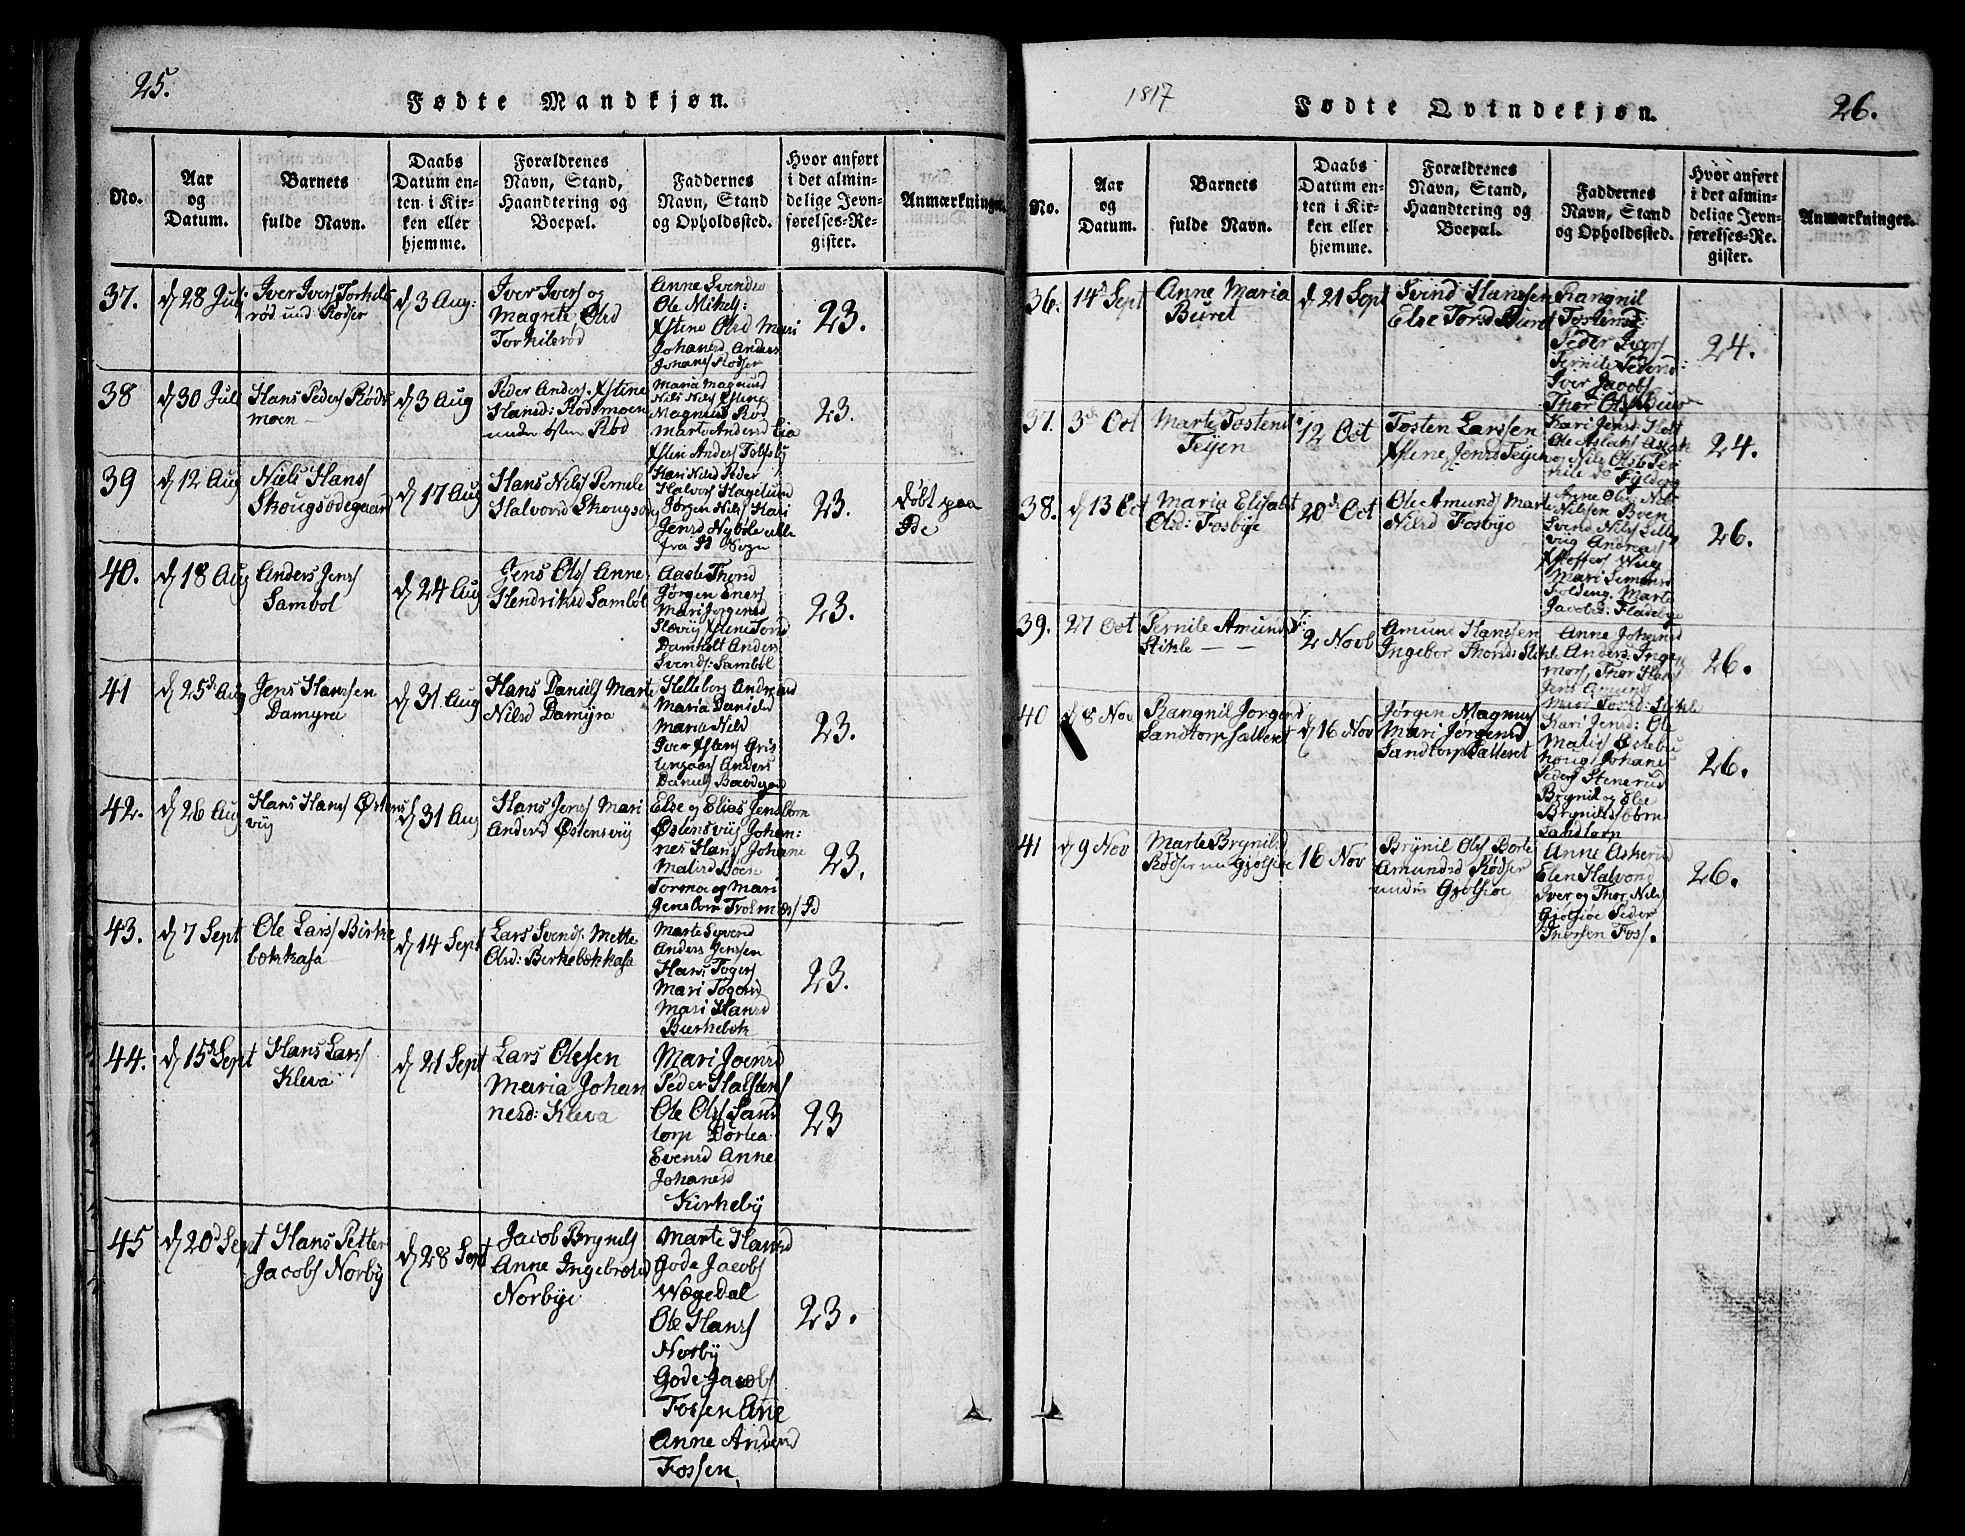 25.
Fødte Mandkjøn.
No.
Aar
og
Datum.
Barnets
fulde Navn.
Daabs
Datum en-
ten i Kir-
ken eller
hjemme.
Forældrenes
Navn, Stand,
Haandtering og
Boepæl.
Faddernes
Navn, Stand
og Opholdssted.
Hvor anført
i det almin-
delige Jevn-
førelses-Re-
gister.
Anmærkninger.
37.
d 28 Juli
Iver Ivers Torkils
rød und Rødser
d 3 Aug:
Iver Ivers og
Magrete Olsd
Torkilsrød
Anne Svendsd
Ole Mikels:
Xstine Olsd Mari
Johanesd Anders
Johanes Rødser
23.
38
d 30 Juli
Hans Peders Røds
moen
d 3 Aug
Peder Anders: Xstine
Hansd: Rødsmoen
under østen Rød
Maria Magnusd
Nils Nils
Magnus Rød
Marte Andersd Lia
Xsten Anders
23.
39
d 12 Aug
Niels Hans
Skougsødegaard
d 17 Aug
Hans Nils Pernele
Halvorsd Skougsøeg
Kari Nilsd Peder
Halvors Hagelund
Jørgen Nils Kari
Jensd Nyböle alle
fra Id Sogn
23.
døbt paa
Ide
40.
d 18 Aug
Anders Jens
Sambøl
d 24 Aug
Jens Ols Anne
Hendriksd Sambøl
Aaste Thorsd
Jørgen Eners
Mari Jorgensd
Slævig Xstine Torsd
Damholt Anders
Svends: Sambøl
23.
41
d 25d Aug
Jens Hanssen
Damyra
d 31 Aug
Hans Daniels Marte
Nilsd Damyra
Helleborg Andreasd
Maria Danielsd
Marte Nilsd
Iver Xstens Gris
lingaas Anders
Daniels
23.
42.
d 26 Aug
Hans Hans Østens
viig
d 31 Aug
Hans Jens Mari
Andersd Østensviig
Else og Elias Jensbørn
Østensviig Johan:
nes Hans Johane
Matisd Boen
Tormoe og Mari
Jensbørn Id
23.
43.
d 7 Sept
Ole Lars Birke
bækkasa
d 14 Sept
Lars Svends: Mette
Olsd: Birkebækkasa
Marte Syversd
Anders Jenssen
Hans Togers
Mari Togersd
Mari Hansd
Birkebæk
23.
44.
d 15d Sept
Hans Lars
Kleva
d 21 Sept
Lars Olessen
Maria Johan
nesd: Kleva
Mari Joensd
Peder Halstens
Ole Ols Sand
torp Dortea
Evensd Anne
Johanesd
Kirkeby
23
45
d 20d Sept
Hans Petter
Jacobs Norby
d 28 Sept
Jacob Brynils
Anne Ingebretsd
Norbye
Marte Hansd
Gode Jacobs
Wægedal
Ole Hans
Norby
Gode Jacobs
Fossen Ane
Anne Andersd
Fossen
23.
1817
Fødte Qvindekjøn.
26.
No.
Aar
og
Datum.
Barnets
fulde Navn.
Daabs
Datum en-
ten i Kir-
ken eller
hjemme.
Forældrenes
Navn, Stand,
Haandtering og
Boepæl.
Faddernes
Navn, Stand
og Opholdssted.
Hvor anført
i det almin-
delige Jevn-
førelses-Re-
gister.
Anmærkninger.
36.
14d Sept
Anne Maria
Buret
d 21 Sept
Svend Hanssen
Else Torsd Buret
Rangnil
Tostensd:
Peder Ivers
Pernile Pedersd:
Iver Jacobs
Thor Ols Buer
24.
37.
3d Oct
Marte Tostensd
Teijen
12 Oct
Tosten Larssen
Xstine Jensd Teijen
Kari Jensd Holt
Ole Aslaks Aslak
og Nils Ols Per
nile
24.
38.
d 13 Oct
Maria Elisabet
Olsd: Fosbye
20d Oct
Ole Amunds Marte
Nilsd Fosbye
Anne Olsd: Nils
Nilsen Boen
Svend Nils Lille
viig Andreas
Xstoffers Wiig
Mari Semensd
Foldeng. Marte
Jacobsd:
26.
39.
27 Oct
Pernile Amundsd:
Stikle
2 Novb
Amund Hanssen
Ingebor Thordsd: Stikle
Anne Johansd
Anders: Inge
mors, Thor Hans
Jens Amunds
Mari Torsd: Stikle
26.
40
d 8 Nov
Rangnil Jorgensd
Sandtorpsalleret
d 16 Nov
Jørgen Magnus
Mari Jørgensd
Sandtorpsalleret
Kari Jensd: Ole
Matis Østebu
Johanes
Peders Stenerud
Brynil og Else
Brynilds børn
Sandtorp
26.
41
d 9 Nov
Marte Brynilsd
Rødser un Gjølsiøe
16 Nov
Brynil Ols Borte
Amundsd Rødser
under Gjølsiøe
Anne Askersd
Elen Halvorsd
Iver og Thor Nils
Gjølsiøe Peder
Thorsen Fos.
26.